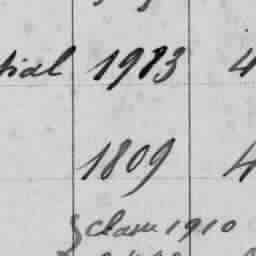 tial 1913 4
1809 4
{ Claim 1910